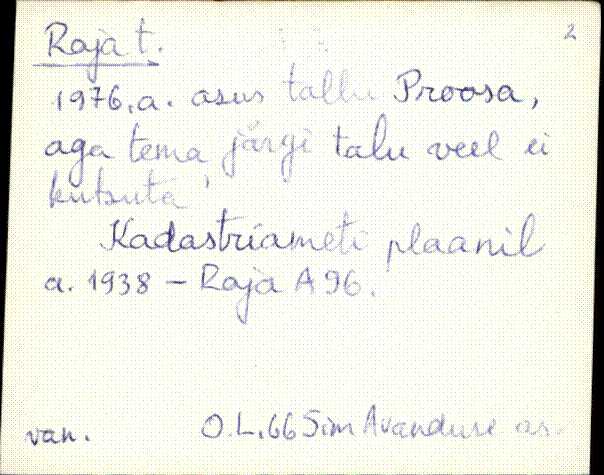 2
Raja t.
1976. a. asus tallu Proosa,
aga tema järgi talu veel ei
kutsuta
Kadastriameti plaanil
a. 1938 – Raja A 96.
van. O. L. 66 Sim Avanduse as.